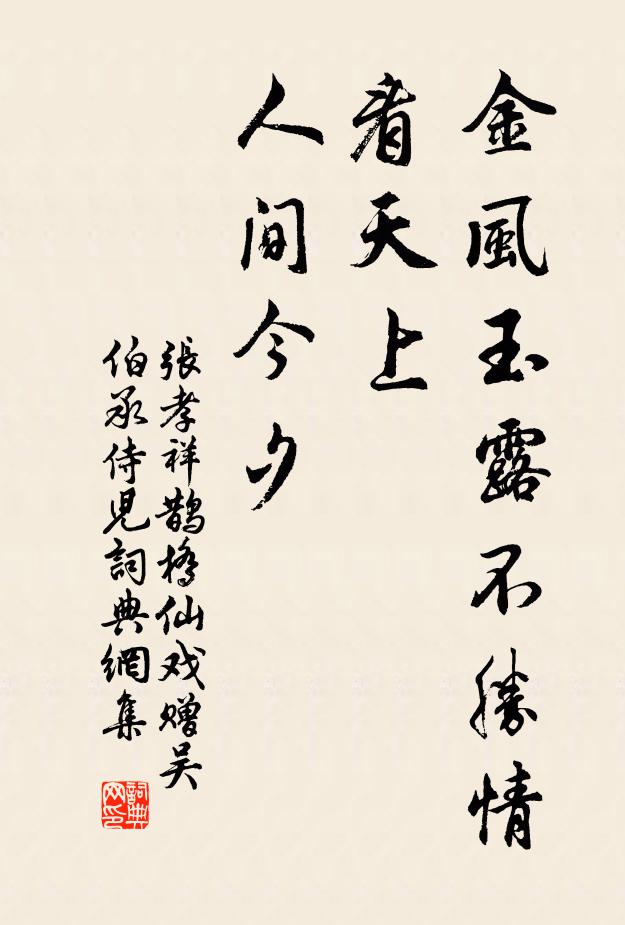 金風玉露不勝情
看天上
人间今夕
張孝祥鵲橋仙戏贈吴
伯承侍児詞典網集
詞典
网印